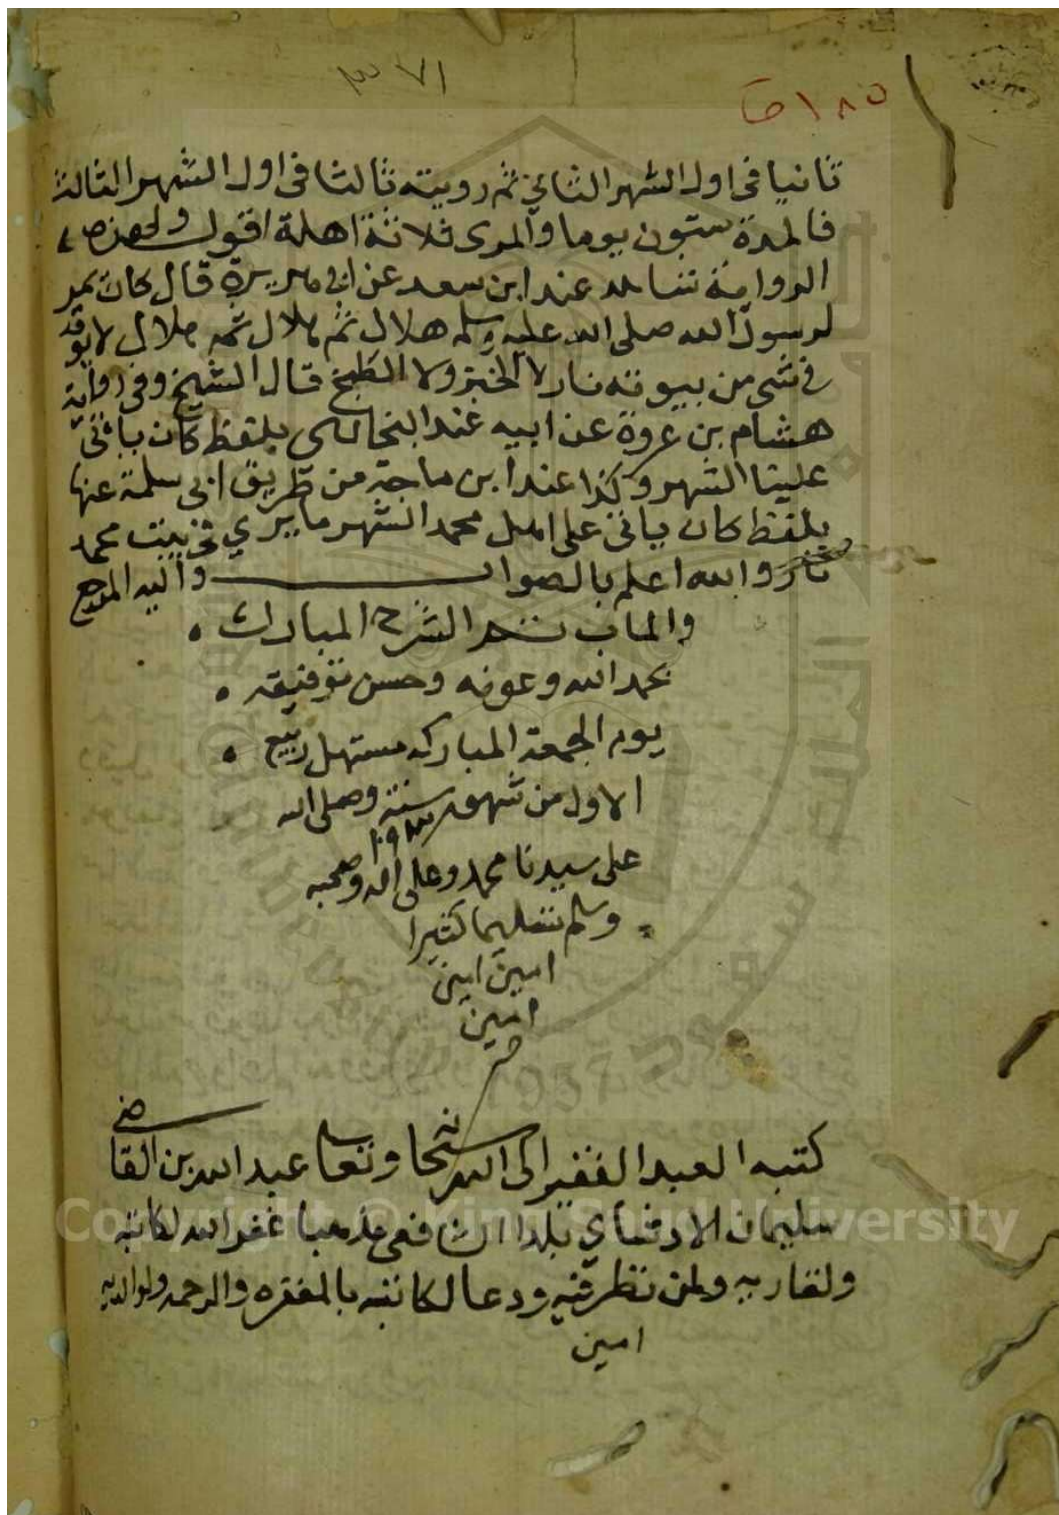 ٣٧١
١٨٥
ثانيا في اول الشهر الثاني ثم رويته ثالثا في اول الشهر الثالث
فالمدة ستون يوما والمرى ثلاثة اهلة اقول ولهذه
الرواية شاهد عند ابن سعد عن ابي هريرة قال كان يمر
لرسول الله صلى الله عليه وسلم هلال ثم هلال ثم هلال لا يوقد
في شي من بيوته نار لا لخبز ولا لطبخ قال الشيخ وفي رواية
هشام بن عروة عن ابيه عند البخاري بلفظ كان ياتي
علينا الشهر وكذا عند ابن ماجة من طريق ابي سلمة عنها
بلفظ كان ياتي على اهل محمد الشهر ما يرى في بيت محمد
نار والله اعلم بالصواب واليه المرجع
والماب تم الشرح المبارك
بحمد الله وعونه وحسن توفيقه
يوم الجمعة المباركه مستهل ربيع
الاول من شهور سنة وصلى الله
على سيدنا محمد وعلى اله وصحبه
وسلم تسليما كثيرا
امين امين
امين
كتبه العبد الفقير الى الله سبحانه وتعالى عبد الله بن القاضي
سليمان بلدا الشافعي مذهبا غفر الله لكاتبه
ولقاريه ولمن نظر فيه ودعا لكاتبه بالمغفره والرحمه ولوالديه
امين
Copyright © King Saud University